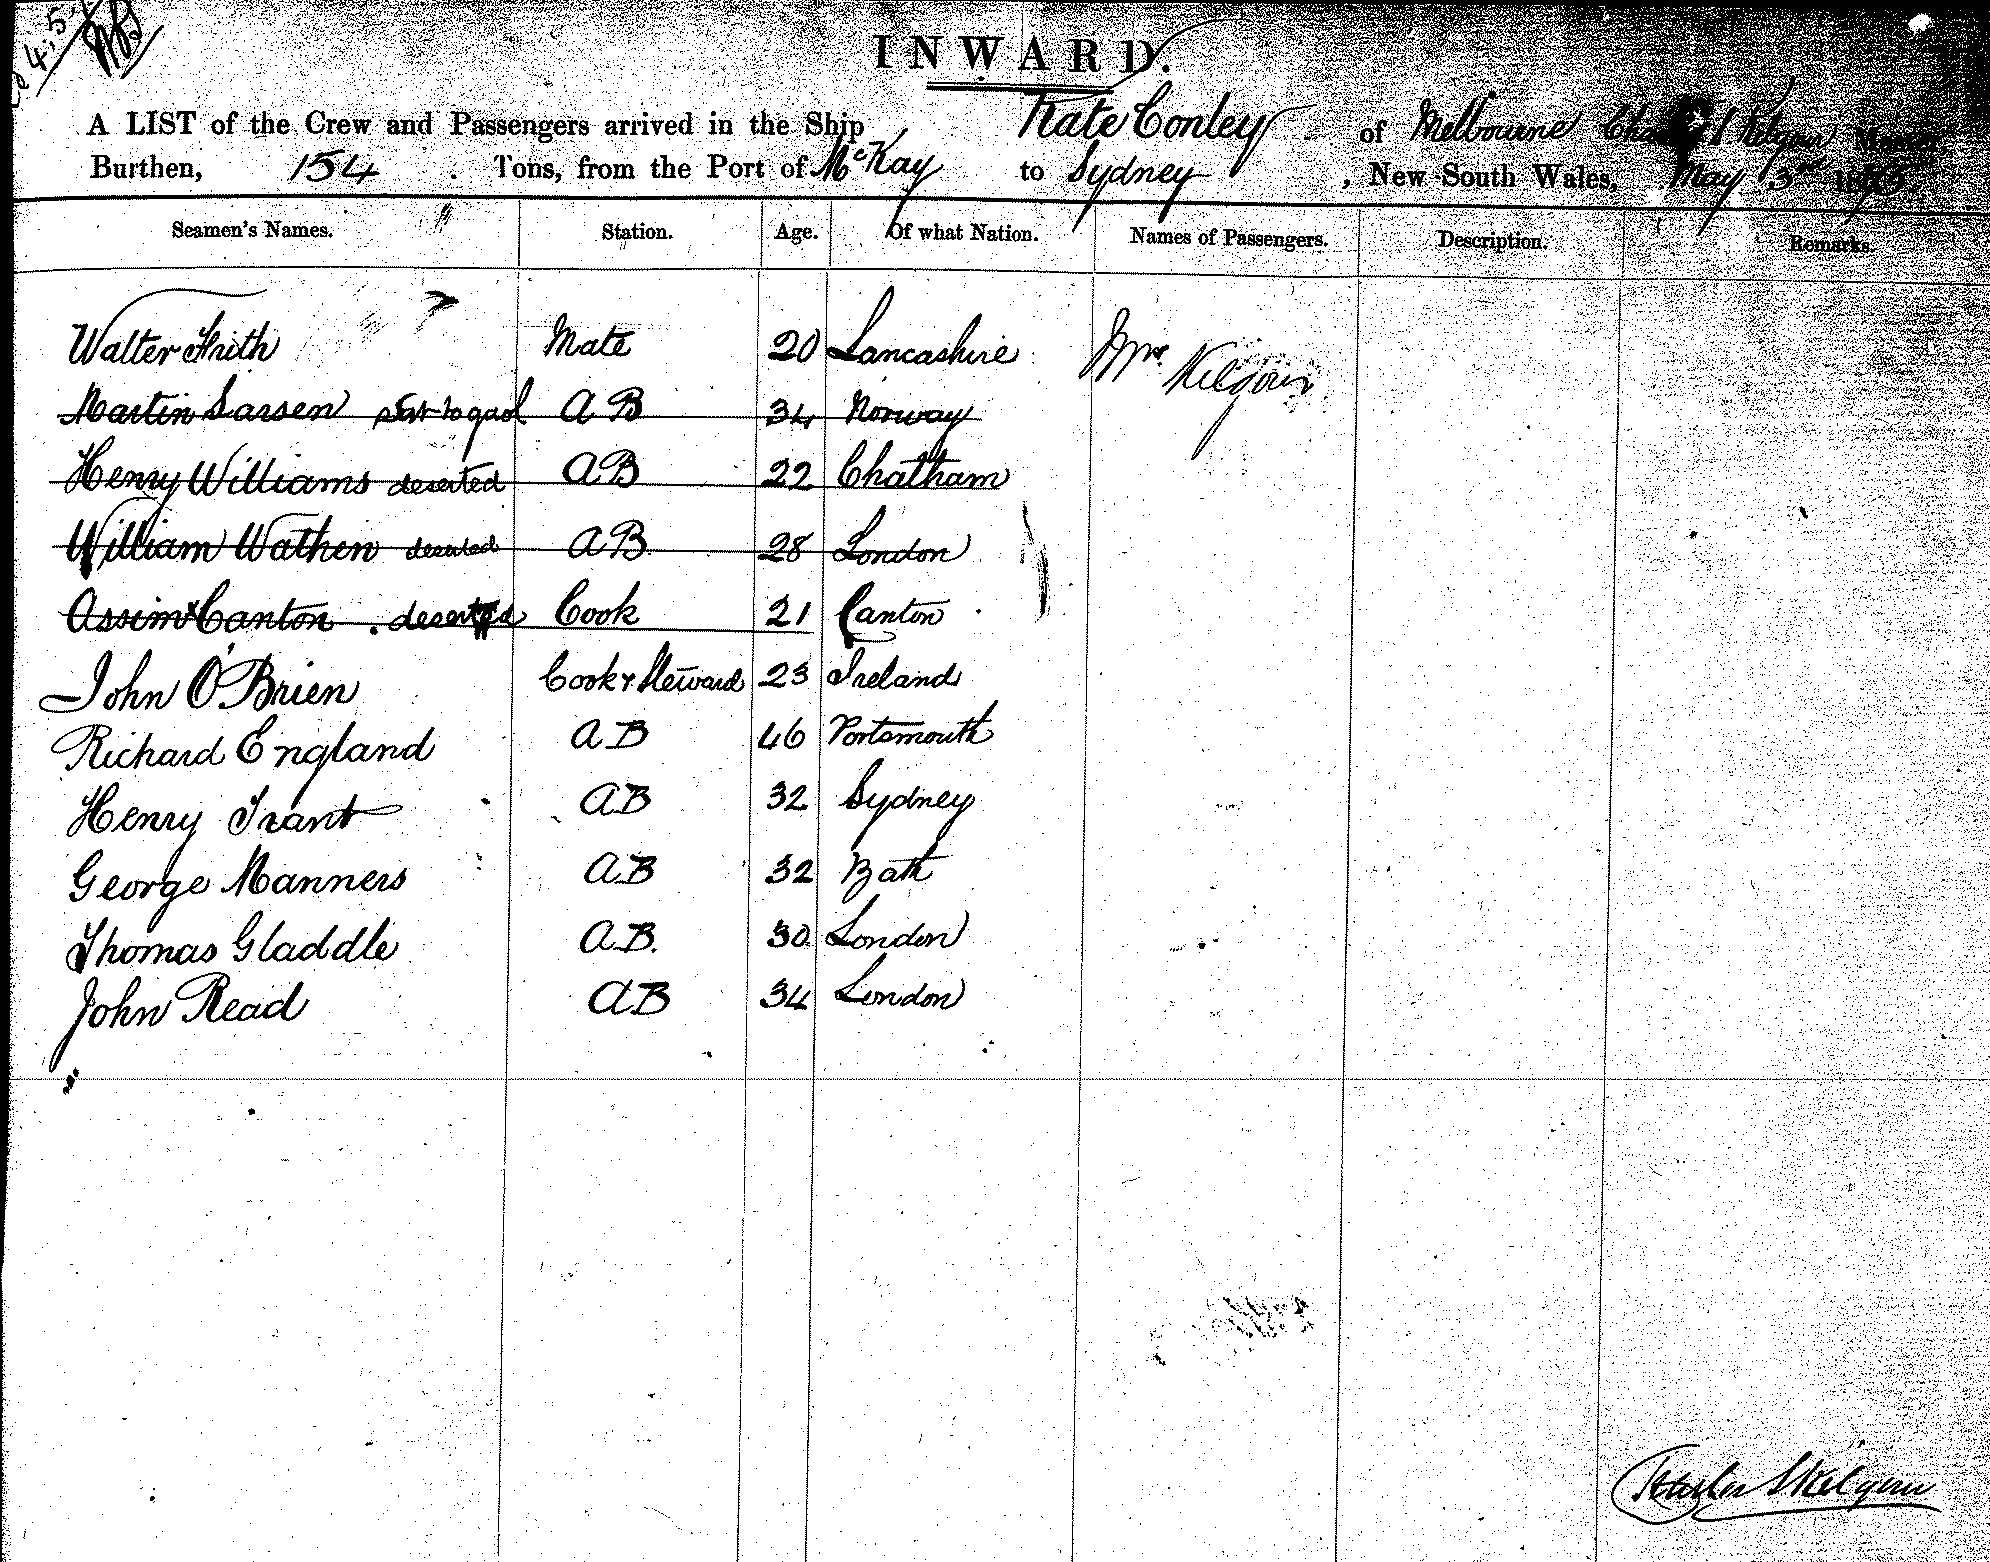 4.5.
INWARD.
A LIST of the Crew and Passengers arrived in the Ship Kate Conley of Melbourne Kilgour Master
Burthen, 154 Tons, from the Port of McKay to Sydney, New South Wales, May 3rd
Seamen's Names. Station. Age. Of what Nation. Names of Passengers. Description. Remarks.
Walter Frith Mate 20 Lancashire Mrs. Kilgour
Martin Larsen sent to gaol AB 34 Norway
Henry Williams deserted AB 22 Chatham
William Wathen deserted AB 28 London
Assim x Canton . deserted Cook 21 Canton
John O'Brien Cook & Steward 23 Ireland
Richard England AB 46 Portsmouth
Henry Trant AB 32 Sydney
George Manners AB 32 Bath
Thomas Gladdle A.B. 30 London
John Read AB 34 London
Kilgour